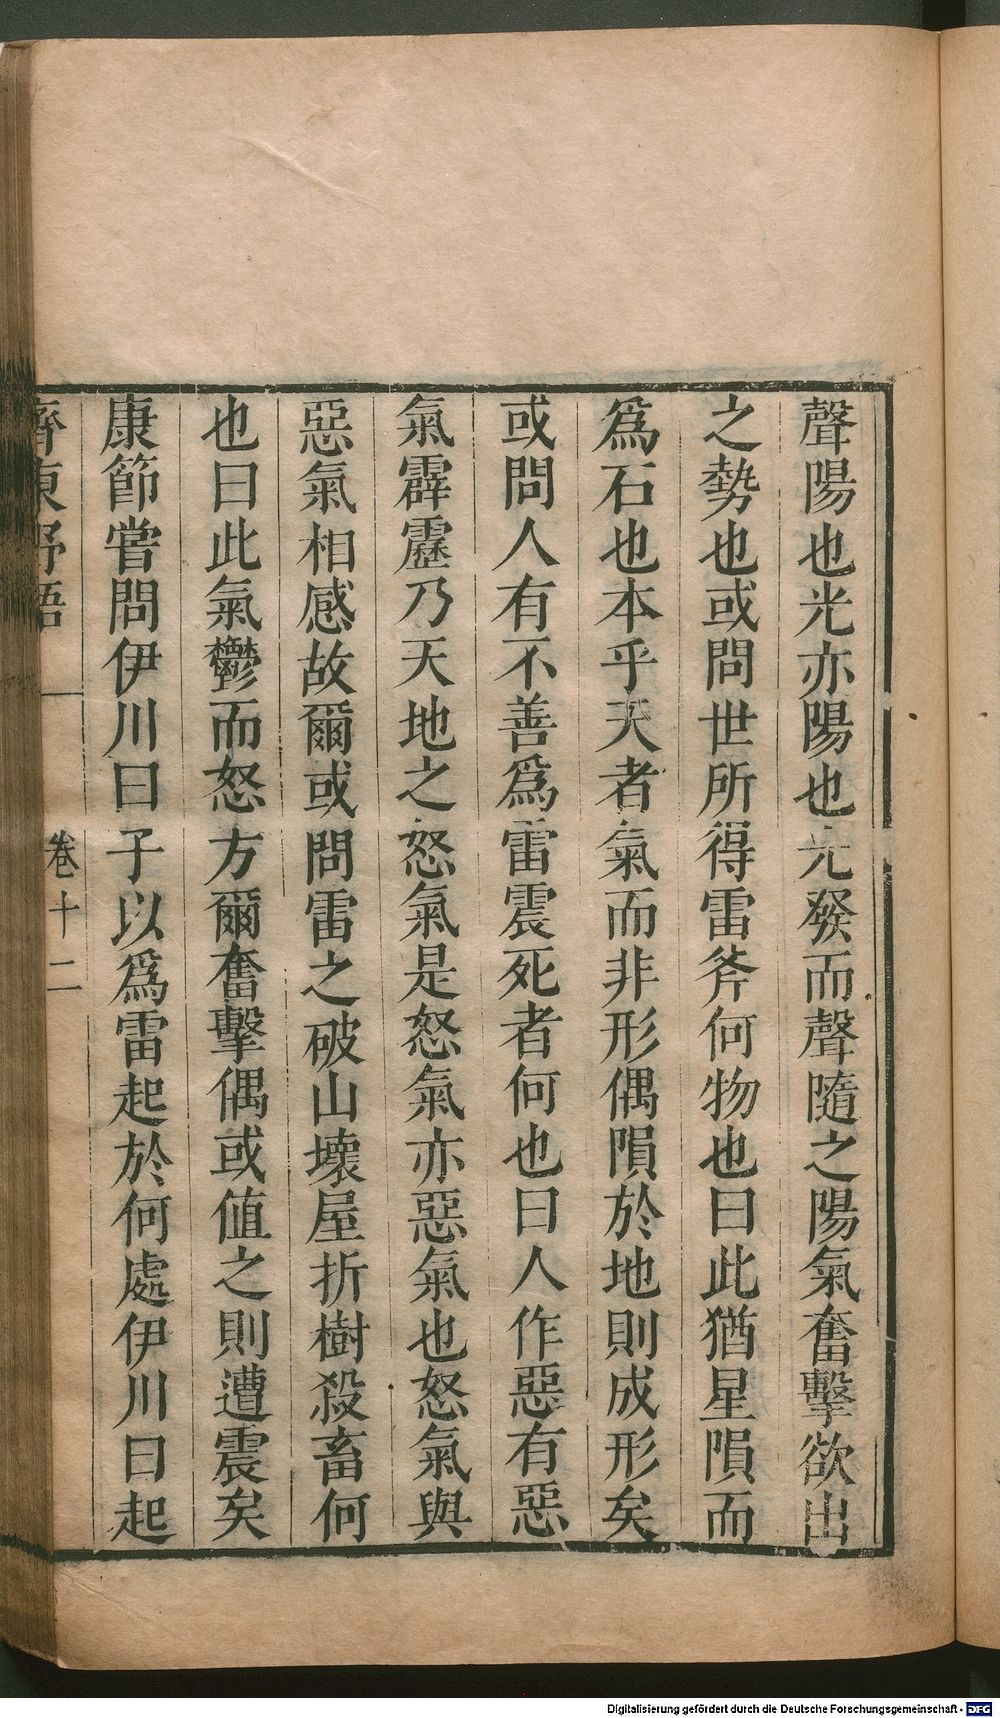 聲陽也光亦陽也光發而聲隨之陽氣奮擊欲出
之勢也或問世所得雷斧何物也曰此猶星隕而
爲石也本乎天者氣而非形偶隕於地則成形矣
或問人有不善爲雷震死者何也曰人作惡有惡
氣霹靂乃天地之怒氣是怒氣亦惡氣也怒氣與
惡氣相感故爾或問雷之破山壞屋折樹殺畜何
也曰此氣鬱而怒方爾奮擊偶或值之則遭震矣
康節嘗問伊川曰子以爲雷起於何處伊川曰起
齊東野語 卷十二
Digitalisierung gefördert durch die Deutsche Forschungsgemeinschaft - DFG